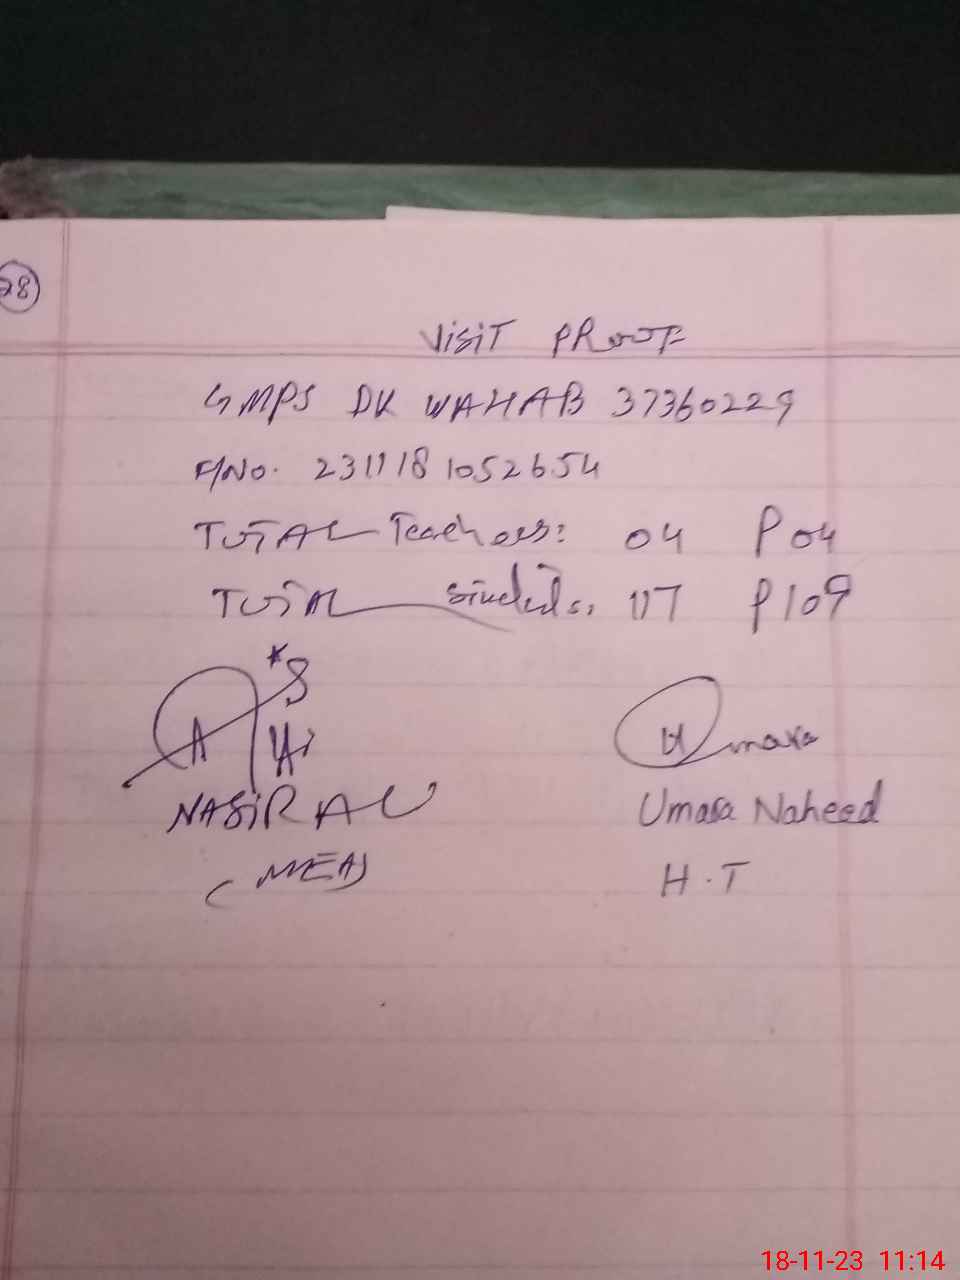 28
VISIT PROOF
GMPS DK WAHAB 37360229
F/NO. 231118 1052654
TOTAL Teachers: 04 P 04
TOTAL Students: 117 P 109
Umara
NASIR ALI
Umara Naheed
(MEA)
H.T
18-11-23 11:14